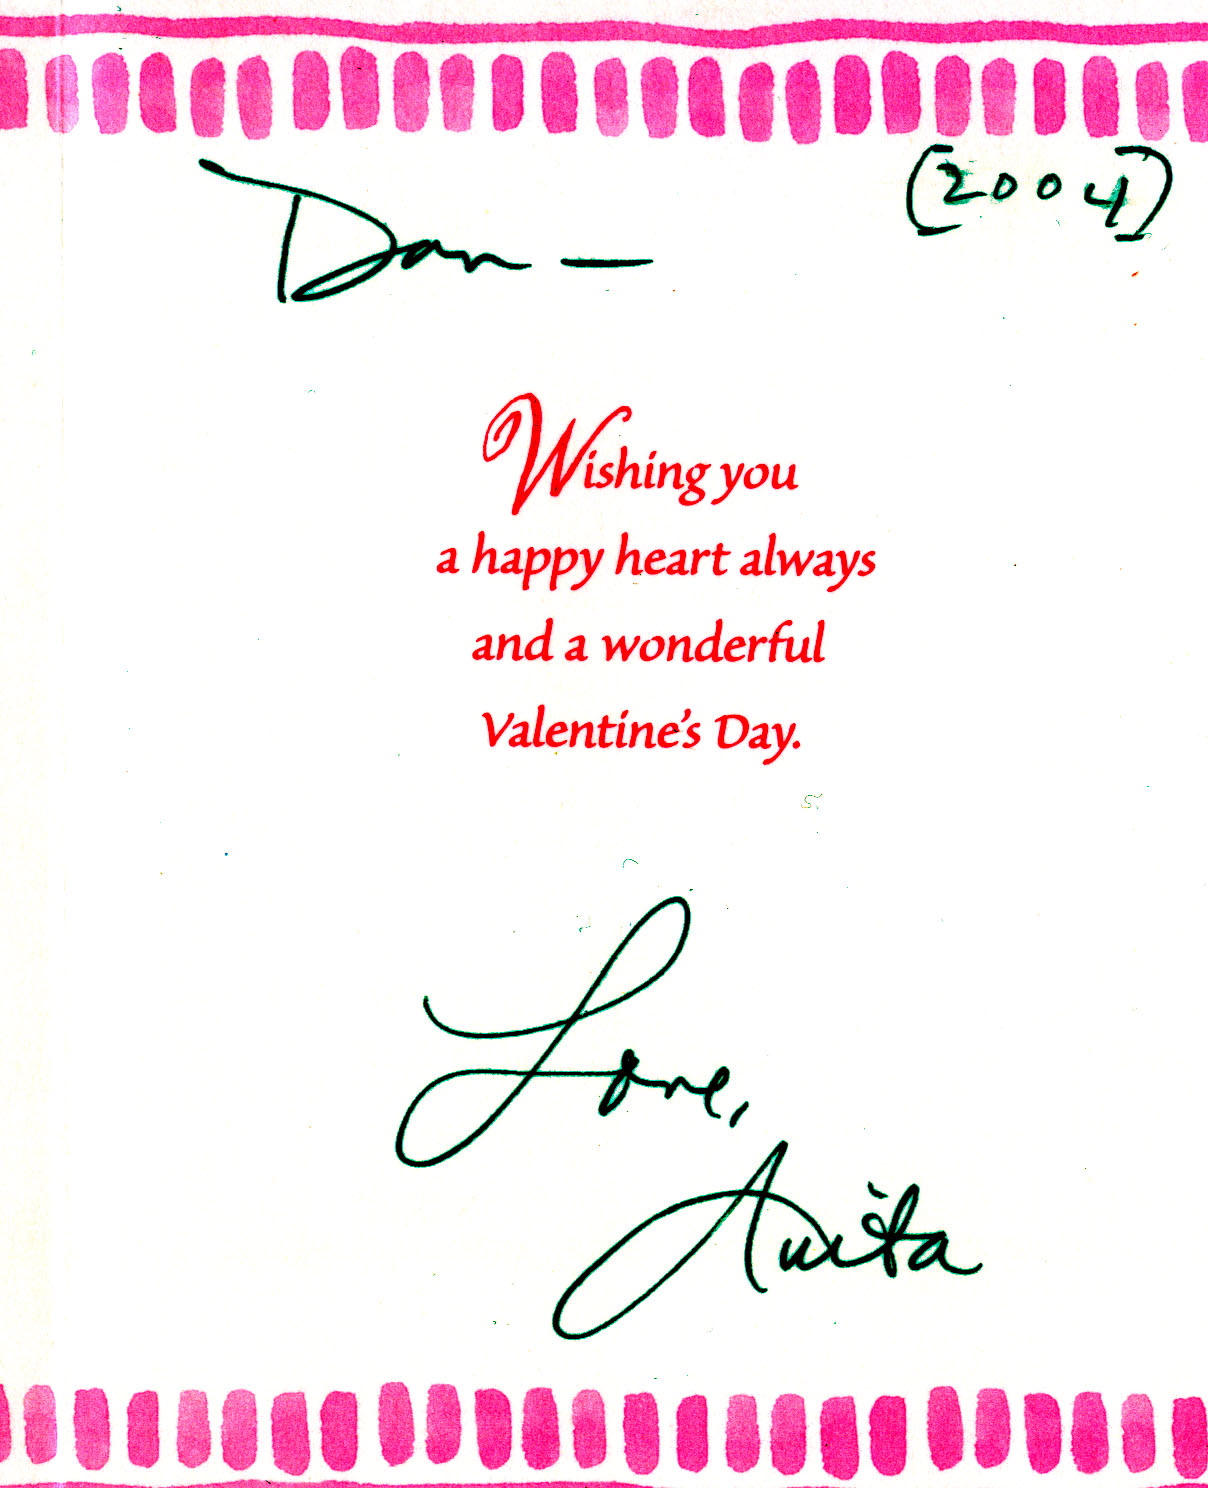 [2004]
Dan —
Wishing you
a happy heart always
and a wonderful
Valentine's Day.
Love,
Anita